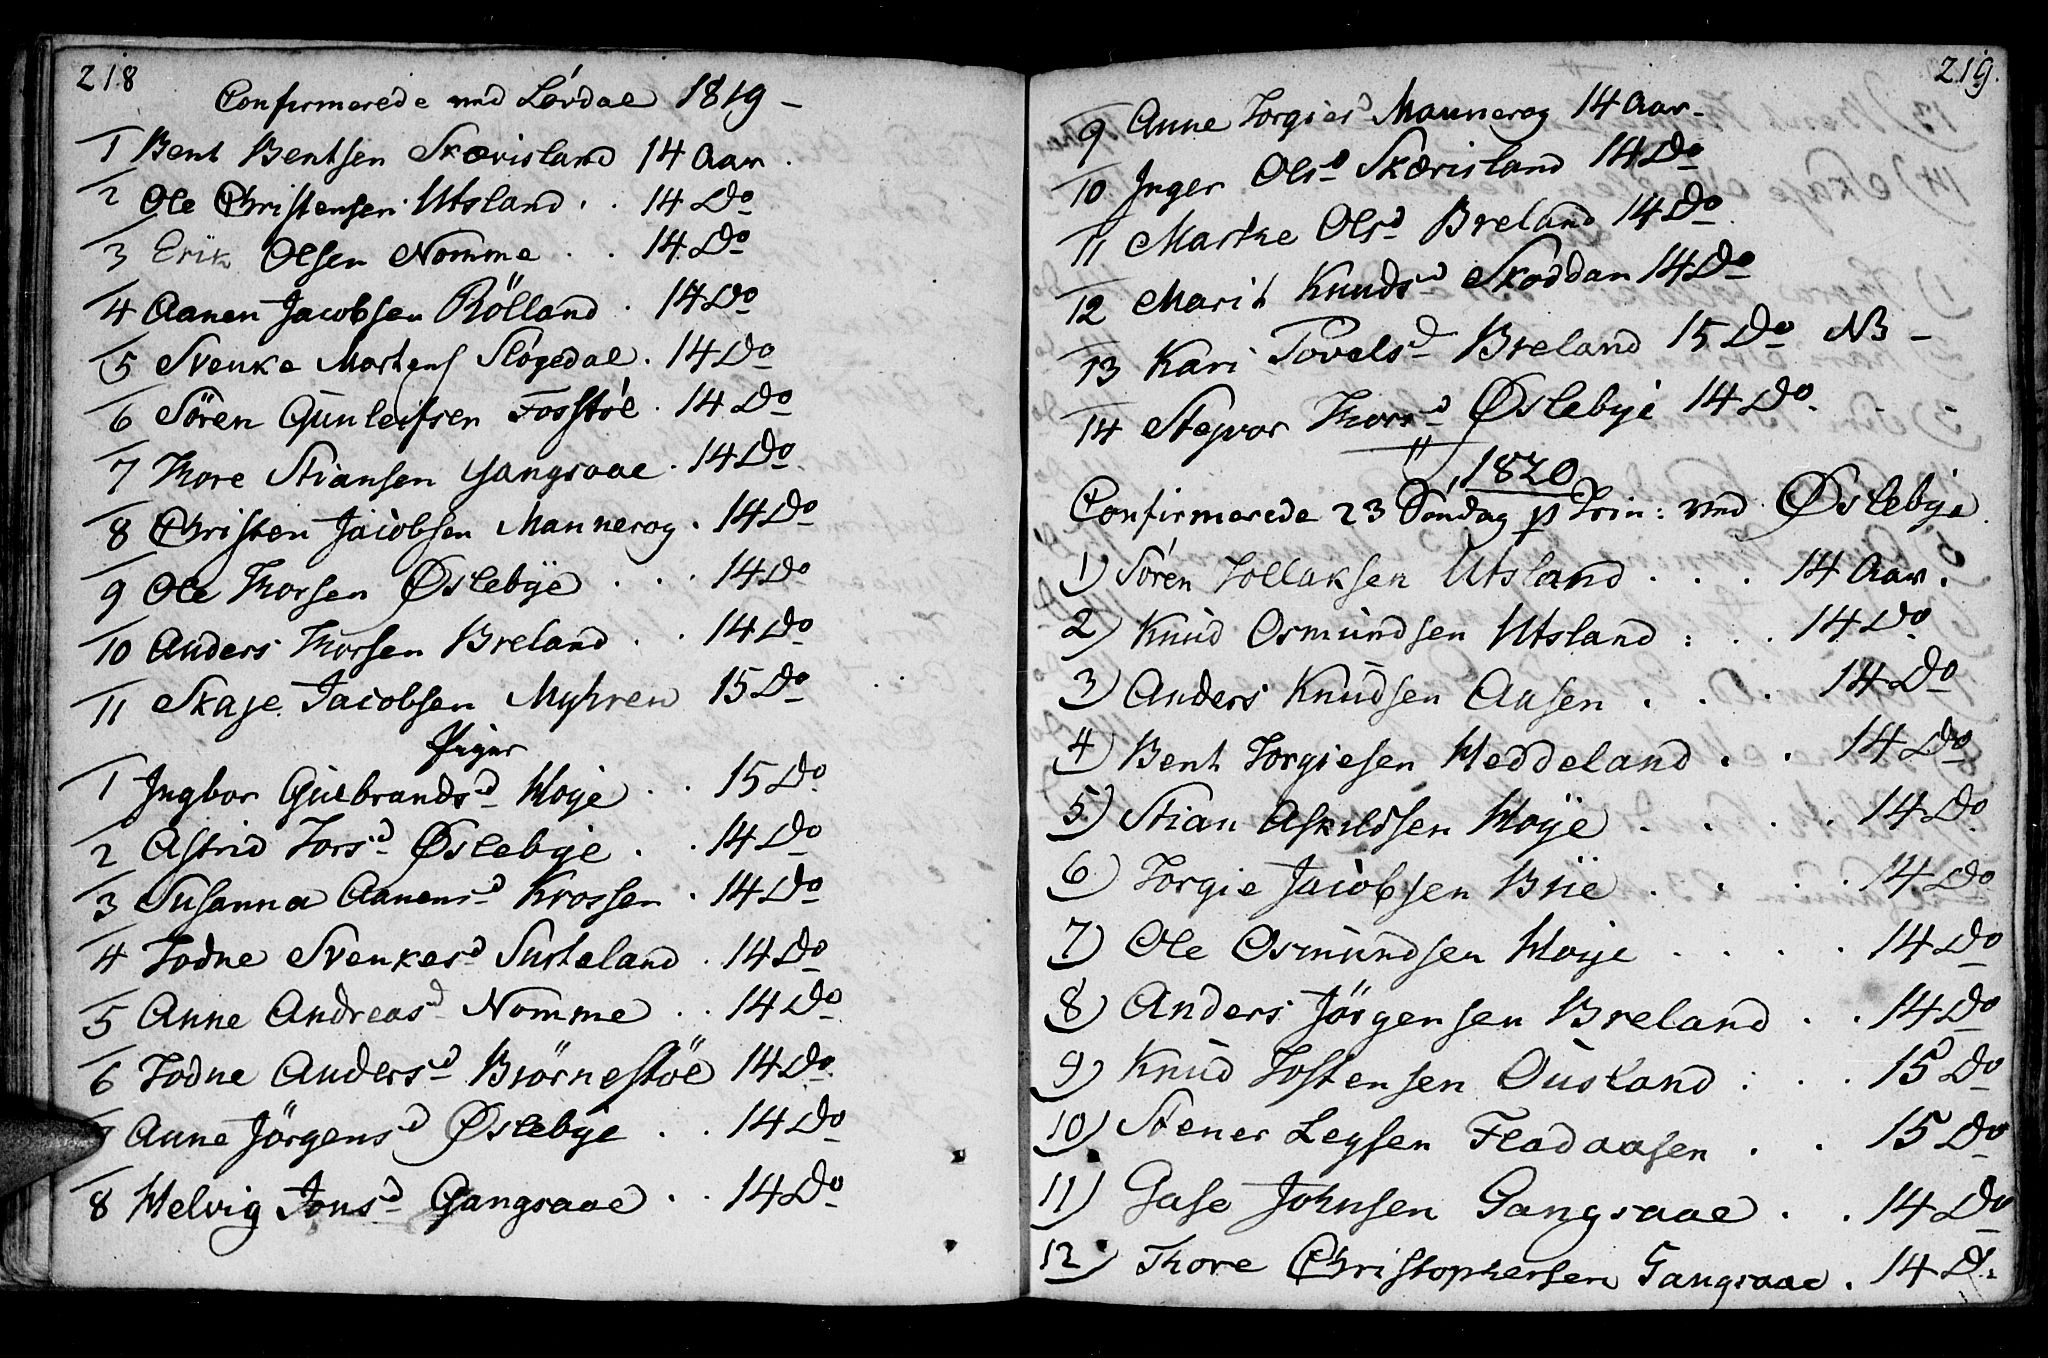 218
Confirmerede ved Lövdal 1819 -
1 Bent Bentsen Skærisland 14 Aar.
2 Ole Christensen Utsland . . 14 Do
3 Erik Olsen Nomme . . 14 Do
4 Aanen Jacobsen Rölland . 14 Do
5 Svenke Mortens Slögedal . 14 Do
6 Sören Gunleifsen Fosstöl . 14 Do
7 Thore Stiansen Gangsaae . 14 Do
8 Christen Jacobsen Mannerog . 14 Do
9 Ole Thorsen Øslebye . . . 14 Do
10 Anders Thorsen Breland . . 14 Do
11 Skaje Jacobsen Myhren 15 Do
Piger
1 Ingbor Gulbrandsd Høye . . 15 Do
2 Astrid Torsd Øslebye . . 14 Do
3 Susanna Aanensd Krossen . 14 Do
4 Todne Svenkesd Susteland . 14 Do
5 Anne Andreasd Nomme . . 14 Do
6 Todne Andersd Biörnestöl 14 Do
Anne Jörgensd Øslebye . . 14 Do
8 Helvig Jonsd Gangsaae . . 14 Do
219.
9 Anne Torgiersd Mannerog 14 Aar -
10 Inger Olsd Skærisland 14 Do
11 Marthe Olsd Breland 14 Do
12 Marit Knudsd Skoddan 14 Do
13 Kari Povelsd Breland 15 Do NB -
14 Stejvor Thorsd Øslebye 14 Do
1820
Confirmerede 23 Söndag p Trin: ved Øslebye
1) Sören Tollaksen Utsland . . . 14 Aar.
2) Knud Osmundsen Utsland : . . 14 Do
3) Anders Knudsen Aasen . . . 14 Do
4) Bent Torgiesen Heddeland . . 14 Do
5) Stian Askildsen Høye . . . . 14 Do
6) Torgie Jacobsen Brie . . . . 14 Do
7) Ole Osmundsen Høye . . . . 14 Do
8) Anders Jörgensen Breland . . 14 Do
9) Knud Tostensen Ousland : . . 15 Do
10) Stener Leysen Fladaasen . . 15 Do
11) Gase Johnsen Gangsaae . . 14 Do
12) Thore Christophersen Gangsaae . 14 D.